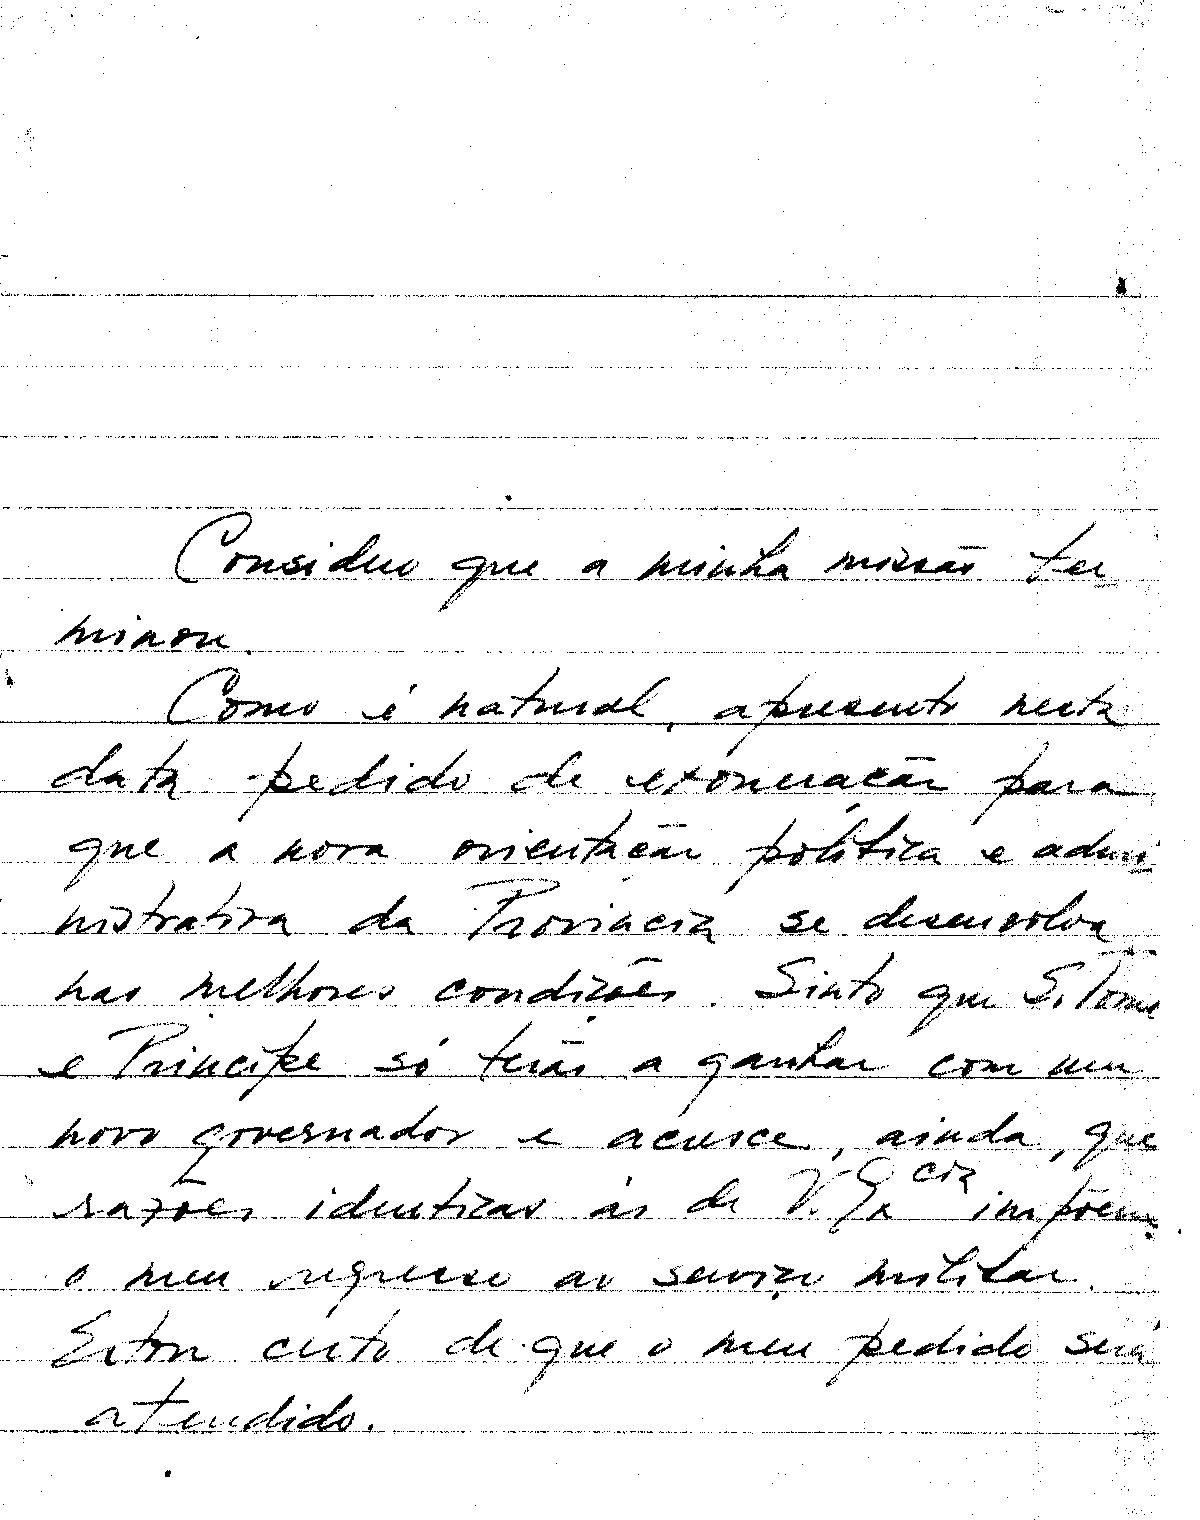 Considero que a minha missão ter-
minou.
Como é natural, apresento nesta
data pedido de exoneração para
que a nova orientação política e admi-
nistrativa da Província se desenvolva
nas melhores condições. Sinto que S. Tomé
e Príncipe só terão a ganhar com um
novo governador e acresce, ainda, que
razões identicas às de V. Excia impõem
o meu regresso ao serviço militar.
Estou certo de que o meu pedido será
atendido.